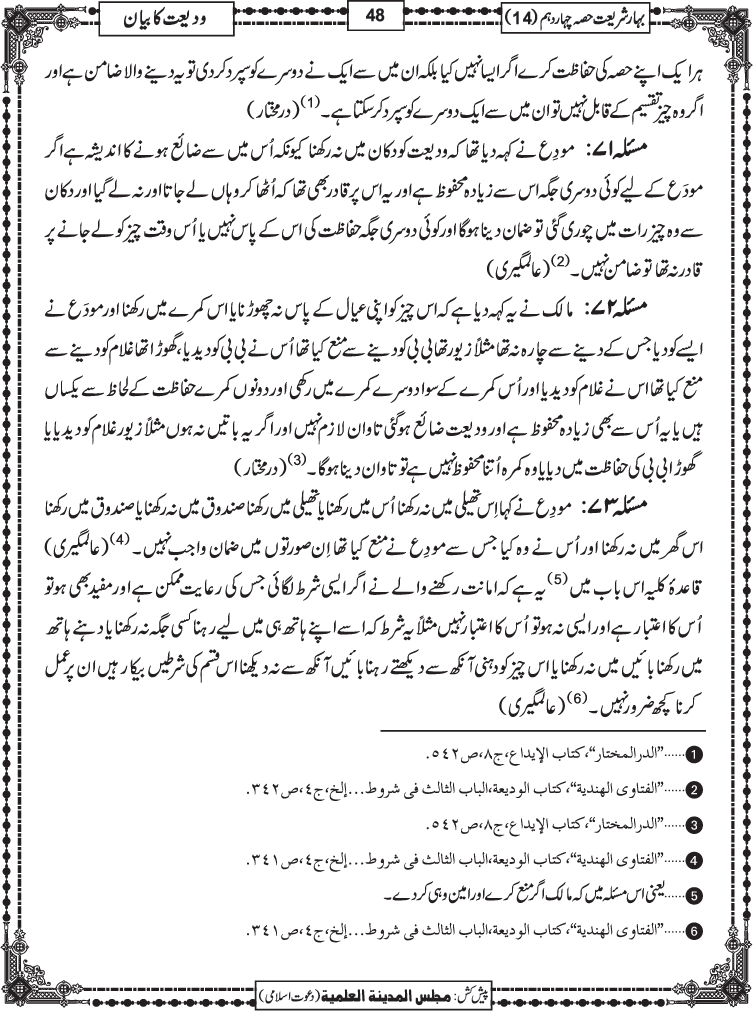 بہار شریعت حصہ چہاردہم (14)
48
ودیعت کا بیان
ہر ایک اپنے حصہ کی حفاظت کرے اگر ایسا نہیں کیا بلکہ ان میں سے ایک نے دوسرے کو سپرد کردی تو یہ دینے والا ضامن ہے اور
اگر وہ چیز تقسیم کے قابل نہیں تو ان میں سے ایک دوسرے کو سپرد کر سکتا ہے۔(1) (درمختار)
مسئلہ ۷۱: مودِع نے کہہ دیا تھا کہ ودیعت کو دکان میں نہ رکھنا کیونکہ اُس میں سے ضائع ہونے کا اندیشہ ہے اگر
مودَع کے لیے کوئی دوسری جگہ اس سے زیادہ محفوظ ہے اور یہ اس پر قادر بھی تھا کہ اُٹھا کر وہاں لے جاتا اور نہ لے گیا اور دکان
سے وہ چیز رات میں چوری گئی تو ضمان دینا ہوگا اور کوئی دوسری جگہ حفاظت کی اس کے پاس نہیں یا اُس وقت چیز کو لے جانے پر
قادر نہ تھا تو ضامن نہیں۔(2) (عالمگیری)
مسئلہ ۷۲: مالک نے یہ کہہ دیا ہے کہ اس چیز کو اپنی عیال کے پاس نہ چھوڑنا یا اس کمرے میں رکھنا اور مودَع نے
ایسے کو دیا جس کے دینے سے چارہ نہ تھا مثلاً زیور تھا بی بی کو دینے سے منع کیا تھا اُس نے بی بی کو دیدیا، گھوڑا تھا غلام کو دینے سے
منع کیا تھا اس نے غلام کو دیدیا اور اُس کمرے کے سوا دوسرے کمرے میں رکھی اور دونوں کمرے حفاظت کے لحاظ سے یکساں
ہیں یا یہ اُس سے بھی زیادہ محفوظ ہے اور ودیعت ضائع ہوگئی تاوان لازم نہیں اور اگر یہ باتیں نہ ہوں مثلاً زیور غلام کو دیدیا یا
گھوڑا بی بی کی حفاظت میں دیا یا وہ کمرہ اُتنا محفوظ نہیں ہے تو تاوان دینا ہوگا۔(3) (درمختار)
مسئلہ ۷۳: مودِع نے کہا اِس تھیلی میں نہ رکھنا اُس میں رکھنا یا تھیلی میں رکھنا صندوق میں نہ رکھنا یا صندوق میں رکھنا
اس گھر میں نہ رکھنا اور اُس نے وہ کیا جس سے مودِع نے منع کیا تھا اِن صورتوں میں ضمان واجب نہیں۔(4) (عالمگیری)
قاعدۂ کلیہ اس باب میں(5) یہ ہے کہ امانت رکھنے والے نے اگر ایسی شرط لگائی جس کی رعایت ممکن ہے اور مفید بھی ہو تو
اُس کا اعتبار ہے اور ایسی نہ ہو تو اُس کا اعتبار نہیں مثلاً یہ شرط کہ اسے اپنے ہاتھ ہی میں لیے رہنا کسی جگہ نہ رکھنا یا دہنے ہاتھ
میں رکھنا بائیں میں نہ رکھنا یا اس چیز کو دہنی آنکھ سے دیکھتے رہنا بائیں آنکھ سے نہ دیکھنا اس قسم کی شرطیں بیکار ہیں ان پر عمل
کرنا کچھ ضرور نہیں۔(6) (عالمگیری)
1......"الدرالمختار"، کتاب الإیداع، ج۸، ص٥٤٢.
2......"الفتاوی الهندیة"، کتاب الودیعة، الباب الثالث فی شروط...إلخ، ج٤، ص٣٤٢.
3......"الدرالمختار"، کتاب الإیداع، ج۸، ص٥٤٢.
4......"الفتاوی الهندیة"، کتاب الودیعة، الباب الثالث فی شروط...إلخ، ج٤، ص٣٤١.
5......یعنی اس مسئلہ میں کہ مالک اگر منع کرے اور امین وہی کردے۔
6......"الفتاوی الهندیة"، کتاب الودیعة، الباب الثالث فی شروط...إلخ، ج٤، ص٣٤١.
پیش کش: مجلس المدینة العلمیة (دعوت اسلامی)